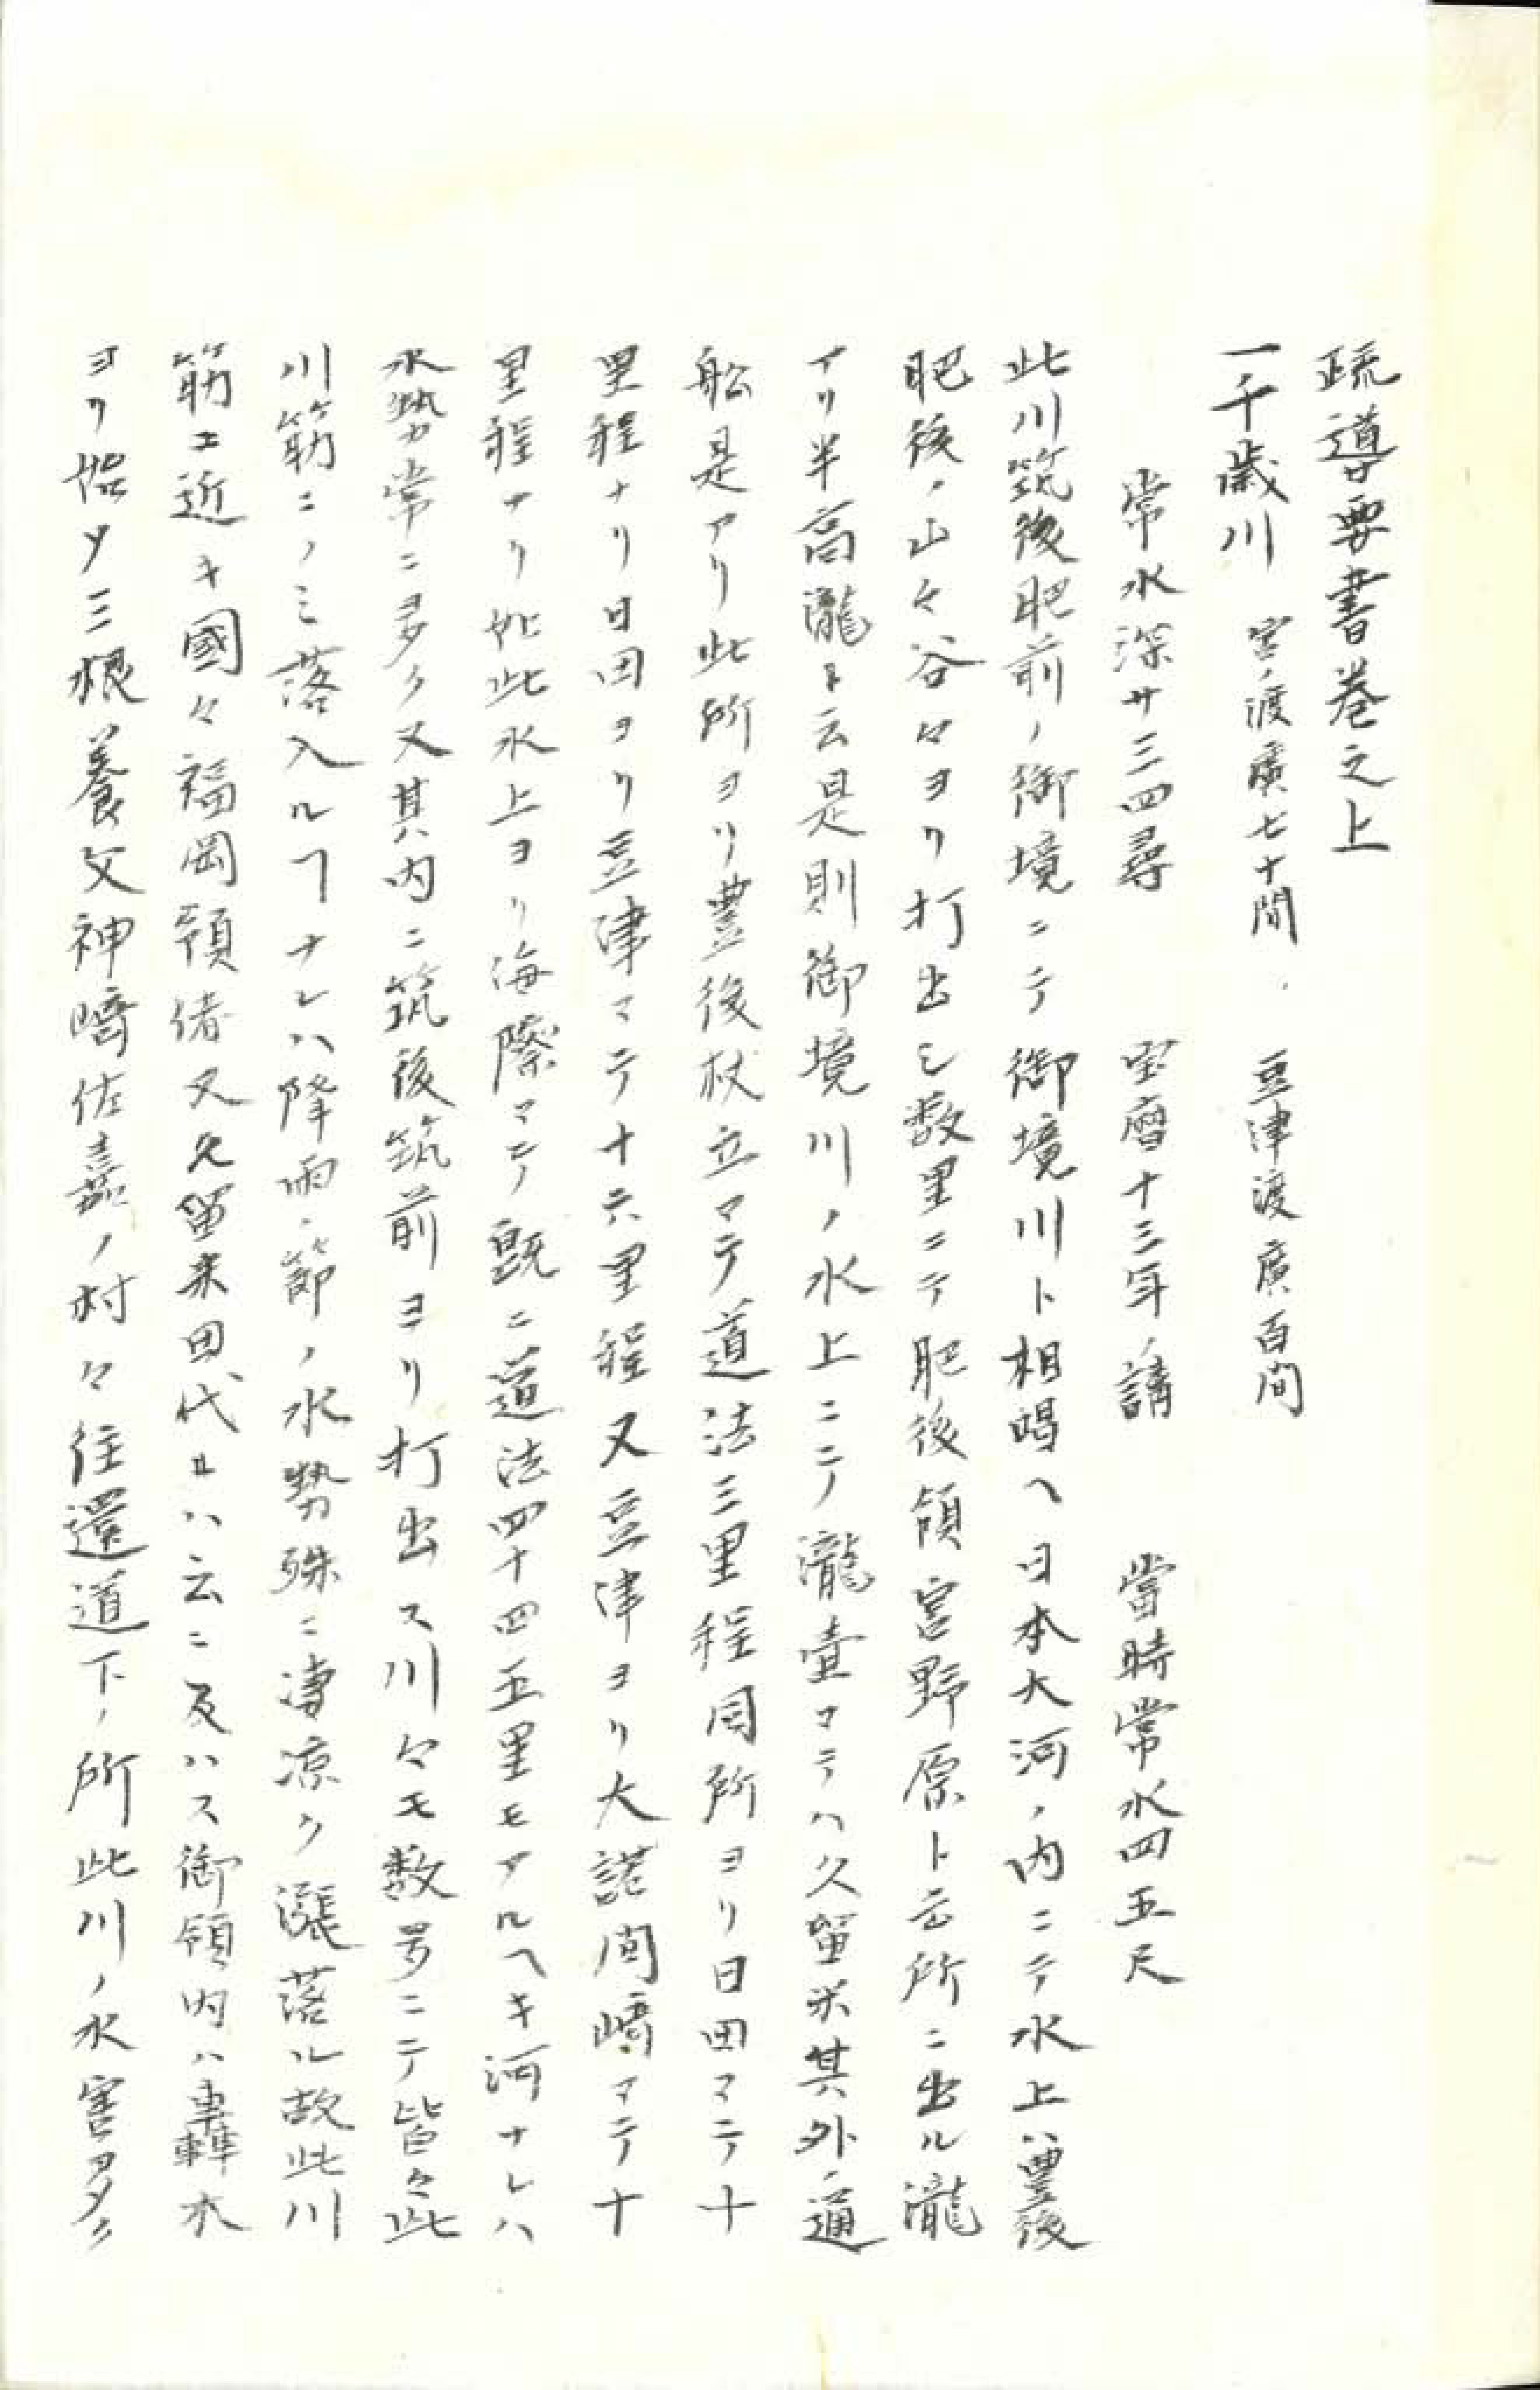 疏導要書巻之上
一千歳川　宮ノ渡廣七十間　豆津渡廣百間
常水深サ三四尋　宝暦十三年ノ講　當時常水四五尺
此川筑後肥前ノ御境ニテ御境川ト相唱ヘ日本大河ノ内ニテ水上ハ豊後
肥後ノ山々谷々ヨリ打出シ数里ニテ肥後領宮野原ト云所ニ出ル瀧
アリ半高瀧ト云是則御境川ノ水上ニテ瀧壷マテハ久留米其外ノ通
舩是アリ此所ヨリ豊後杖立マテ道法三里程同所ヨリ日田マテ十
里程ナリ日田ヨリ豆津マテ十六里程又豆津ヨリ大詫间﨑マテ十
里程ナリ如此水上ヨリ海際マテ既ニ道法四十四五里モアルヘキ河ナレハ
水勢常ニ多ク又其内ニ筑後筑前ヨリ打出ス川々モ数多ニテ皆々此
川筋ニノミ落入ルヿナレハ降雨ノ節ノ水勢殊ニ凄凉ク漲落ル故此川
筋エ近キ國々福岡領偖又久留米田代ナハ云ニ及ハス御領内ハ轟木
ヨリ始メ三根養父神﨑佐嘉ノ村々往還道下ノ所此川ノ水害多ク